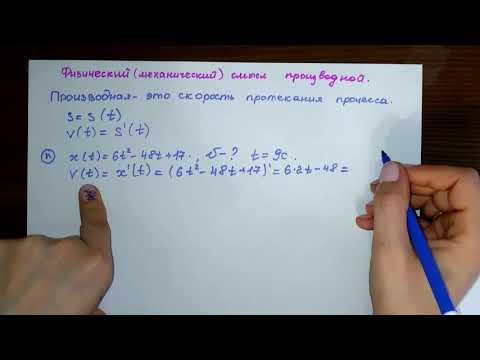 Физический (механический) смысл производной.
Производная - это скорость протекания процесса.
S = S(t)
V(t) = S'(t)
п) x(t) = 6t² - 48t + 17. , v - ? t = 9c.
V(t) = x'(t) = (6t² - 48t + 17)' = 6·2t - 48 =